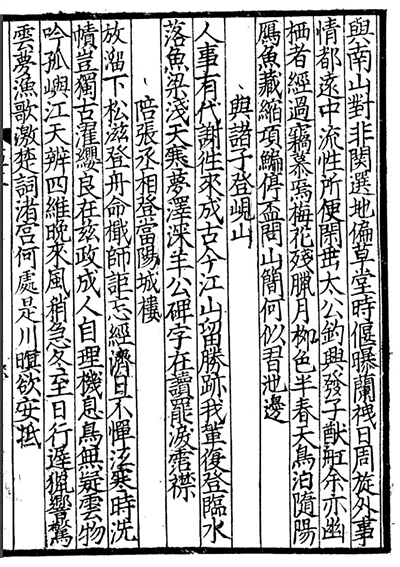 與南山對非関選地偏草堂時偃曝蘭栧日周旋外事
情都遠中流性所便閑垂太公釣興發子猷舡余亦幽
栖者經過竊慕焉梅花殘臘月柳色半春天鳥泊隨陽
鴈魚藏縮項鯿停盃問山簡何似習池邊
與諸子登峴山
人事有代謝徃來成古今江山留勝跡我軰復登臨水
落魚梁淺天寒夢澤深羊公碑字在讀罷淚霑襟
陪張丞相登當陽城樓
放溜下松滋登舟命檝師詎忘經濟日不憚沍寒時洗
幘豈獨古濯纓良在兹政成人自理機息鳥無疑雲物
吟孤嶼江天辨四維晚來風稍急冬至日行遲獵響驚
雲夢漁歌激楚詞渚宮何處是川暝欲安抵